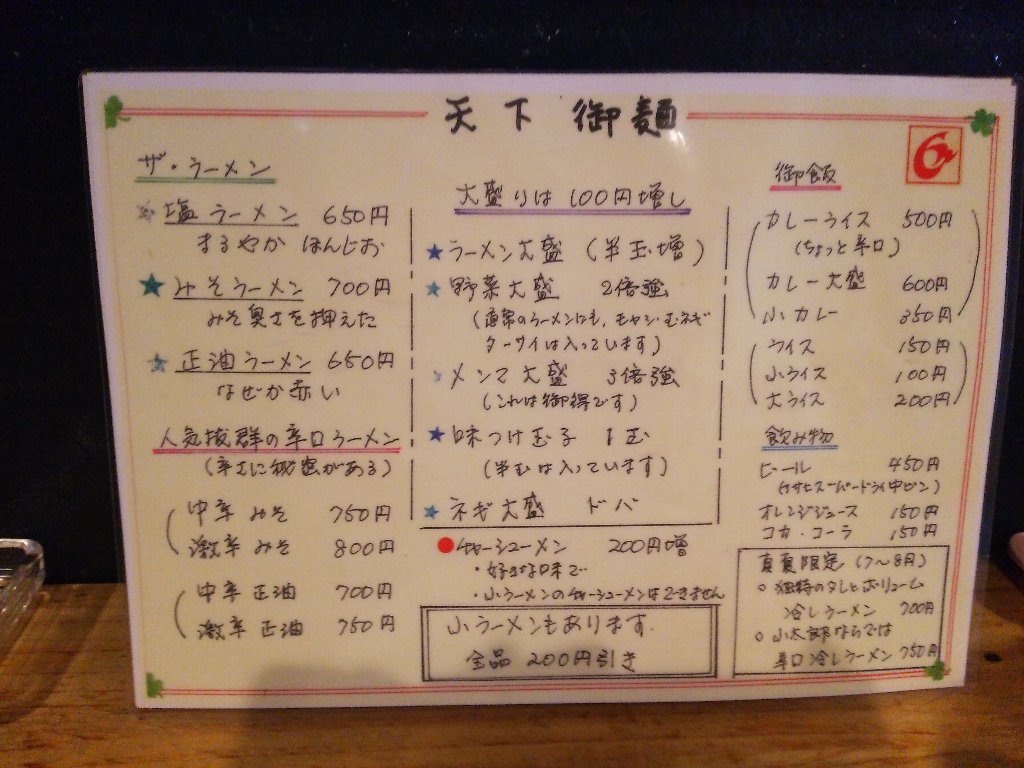 天下御麺
6
ザ・ラーメン
塩ラーメン 650円
まろやか ほんじお
みそラーメン 700円
みそ臭さを押えた
正油ラーメン 650円
なぜか赤い
人気抜群の辛口ラーメン
(辛さに秘密がある)
中辛 みそ 750円
激辛 みそ 800円
中辛 正油 700円
激辛 正油 750円
大盛りは100円増し
★ラーメン大盛 (半玉増)
★野菜大盛 2倍強
(通常のラーメンにも、モヤシ・むネギ
ターサイは入っています)
メンマ大盛 3倍強
(これは御得です)
★味つけ玉子 1玉
(半むは入っています)
★ネギ大盛 ドバ
●チャーシューメン 200円増
・好きな味で
・小ラーメンのチャーシューメンはできません
小ラーメンもあります.
全品 200円引き
御飯
カレーライス 500円
(ちょっと辛口)
カレー大盛 600円
小カレー 350円
ライス 150円
小ライス 100円
大ライス 200円
飲み物
ビール 450円
(アサヒスーパードライ中ビン)
オレンジジュース 150円
コカ・コーラ 150円
真夏限定 (7〜8月)
○ 独特のタレとボリューム
冷しラーメン 700円
○ 小太郎ならでは
辛口冷しラーメン 750円